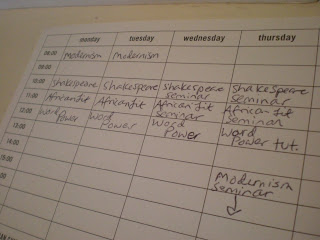 monday tuesday wednesday thursday
08:00 modernism modernism
09:00
10:00 Shakespeare Shakespeare Shakespeare seminar Shakespeare seminar
11:00 African lit African lit African lit seminar African lit seminar
12:00 Word Power Word Power Word Power Word Power tut.
13:00
14:00
15:00 modernism seminar